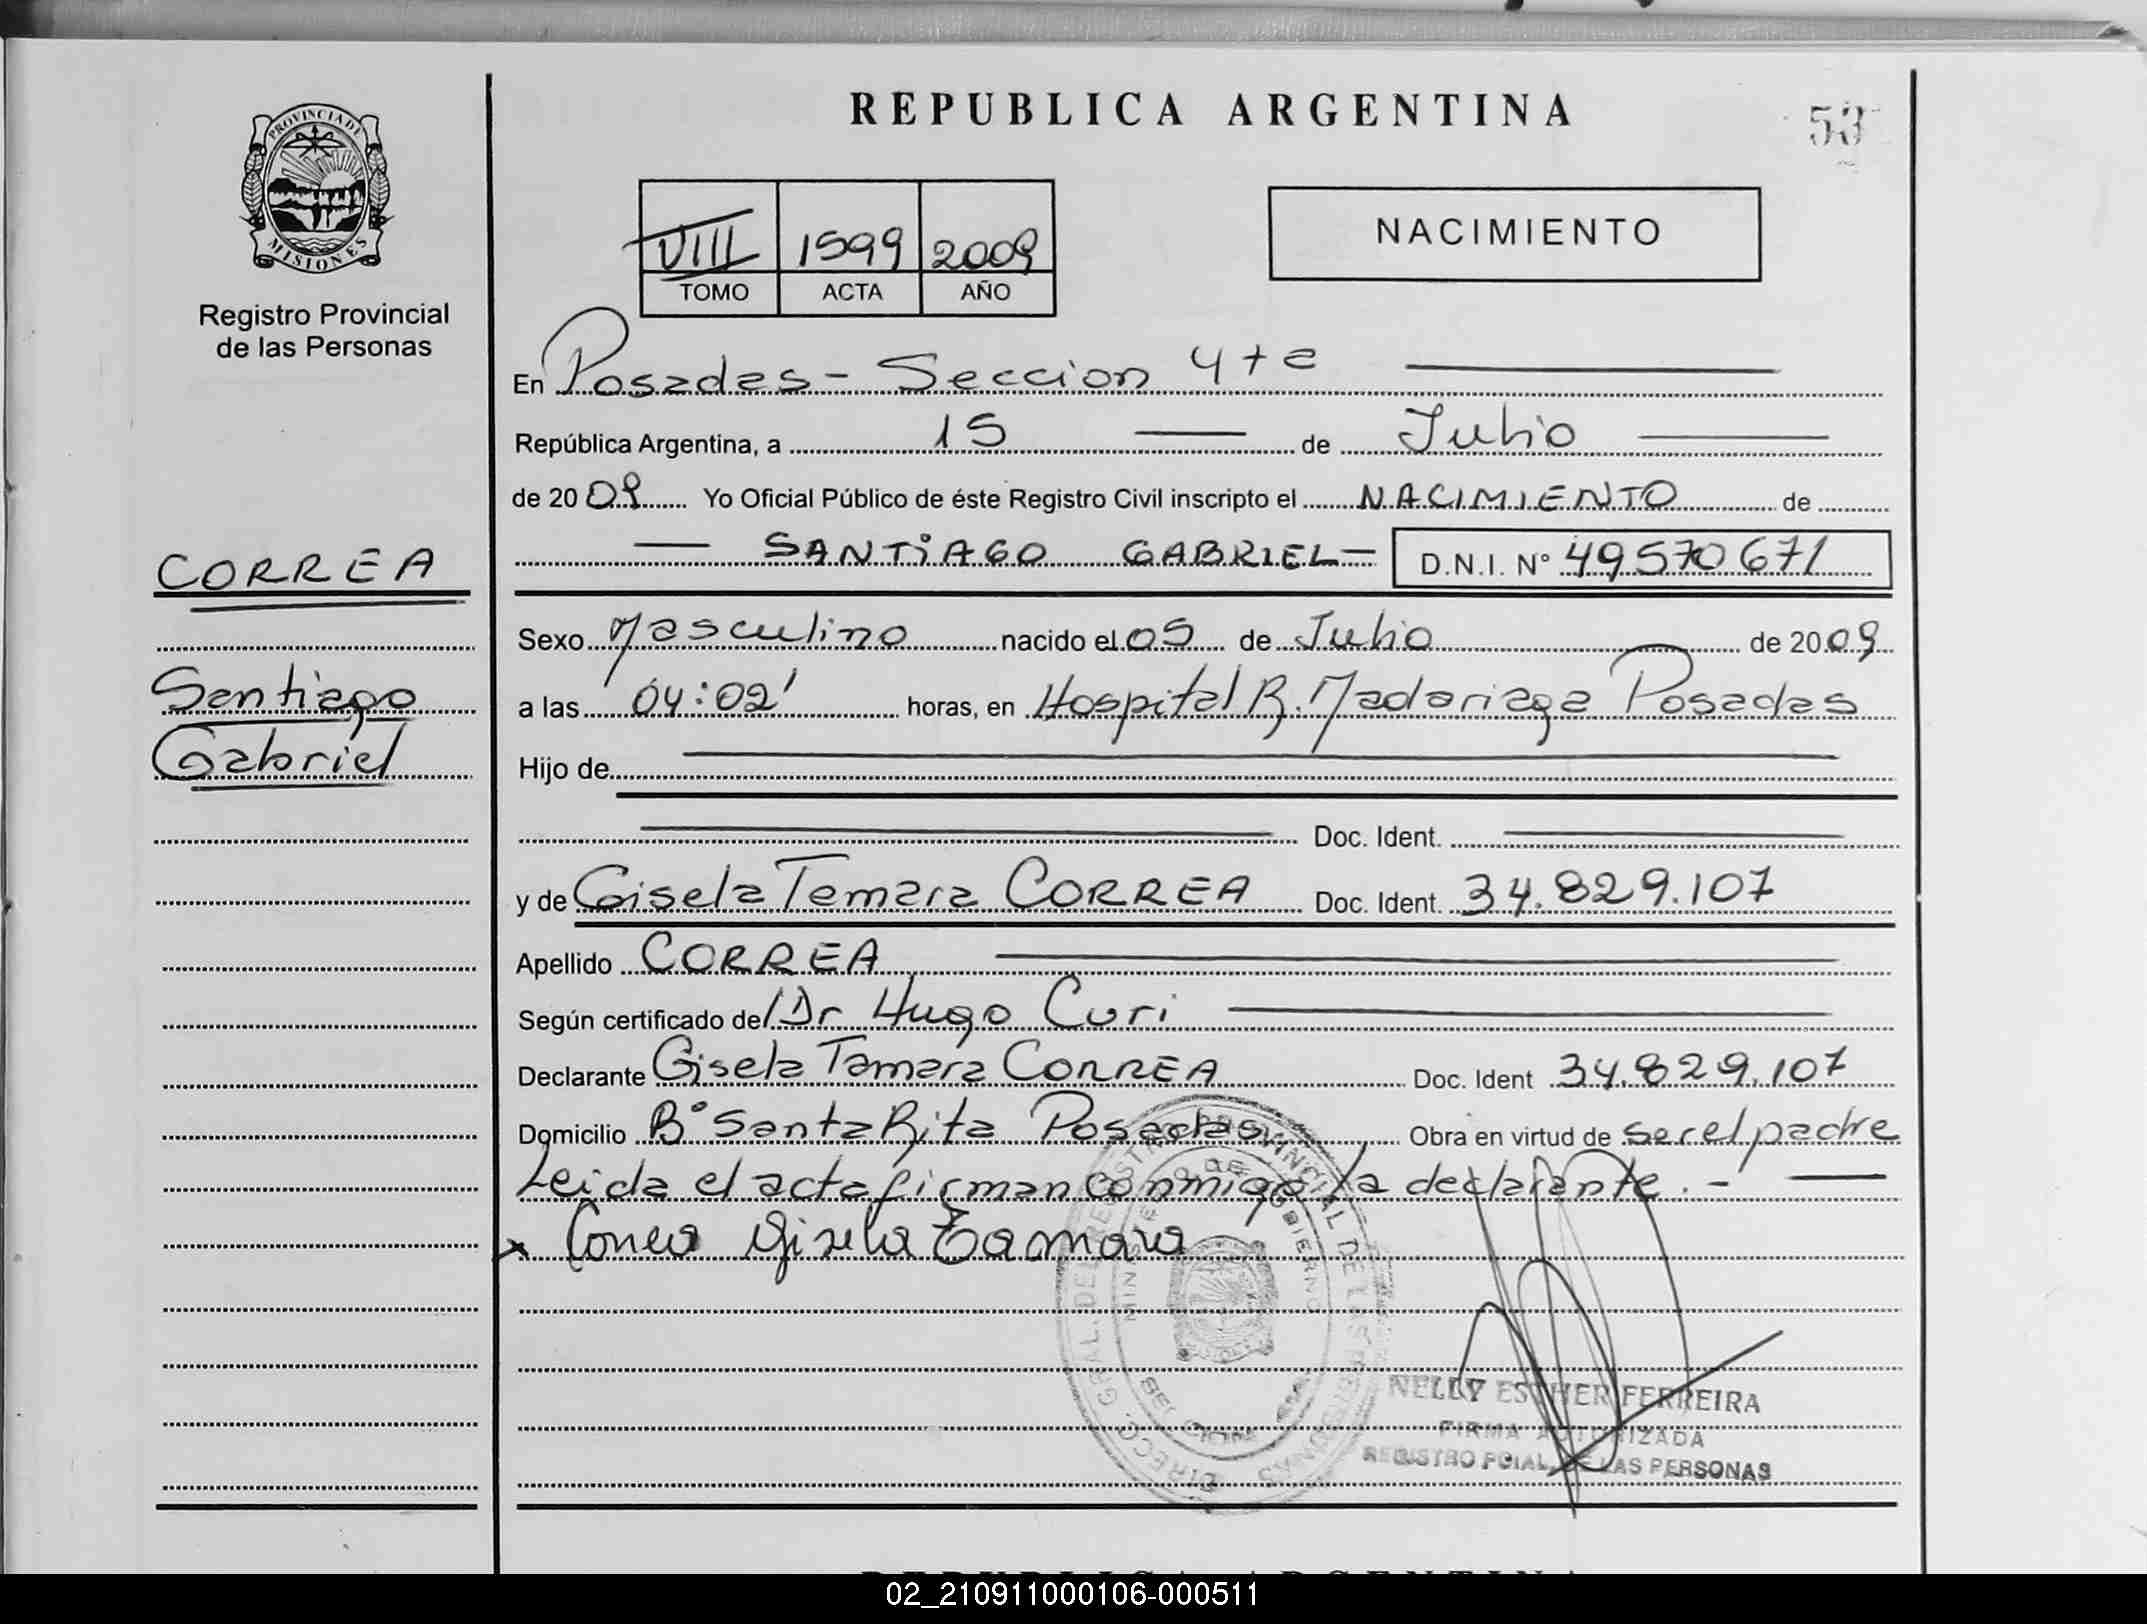 REPUBLICA ARGENTINA
53
PROVINCIA DE
MISIONES
Registro Provincial
de las Personas
VIII 1599 2009
TOMO ACTA AÑO
NACIMIENTO
En Posadas - Seccion 4ta
República Argentina, a 15 de Julio
de 2009 Yo Oficial Público de éste Registro Civil inscripto el NACIMIENTO de
SANTIAGO GABRIEL - D.N.I. Nº 49570671
CORREA
Santiago
Gabriel
Sexo Masculino nacido el 05 de Julio de 2009
a las 04:02' horas, en Hospital R. Madariaga Posadas
Hijo de
Doc. Ident.
y de Gisela Tamara CORREA Doc. Ident. 34.829.107
Apellido CORREA
Según certificado del Dr Hugo Curi
Declarante Gisela Tamara CORREA Doc. Ident 34.829.107
Domicilio Bº Santa Rita Posadas Obra en virtud de ser el padre
Leida el acta firman conmigo la declarante. -
x Correa Gisela Tamara
NELLY ESTHER FERREIRA
FIRMA AUTORIZADA
REGISTRO PCIAL. DE LAS PERSONAS
02_210911000106-000511